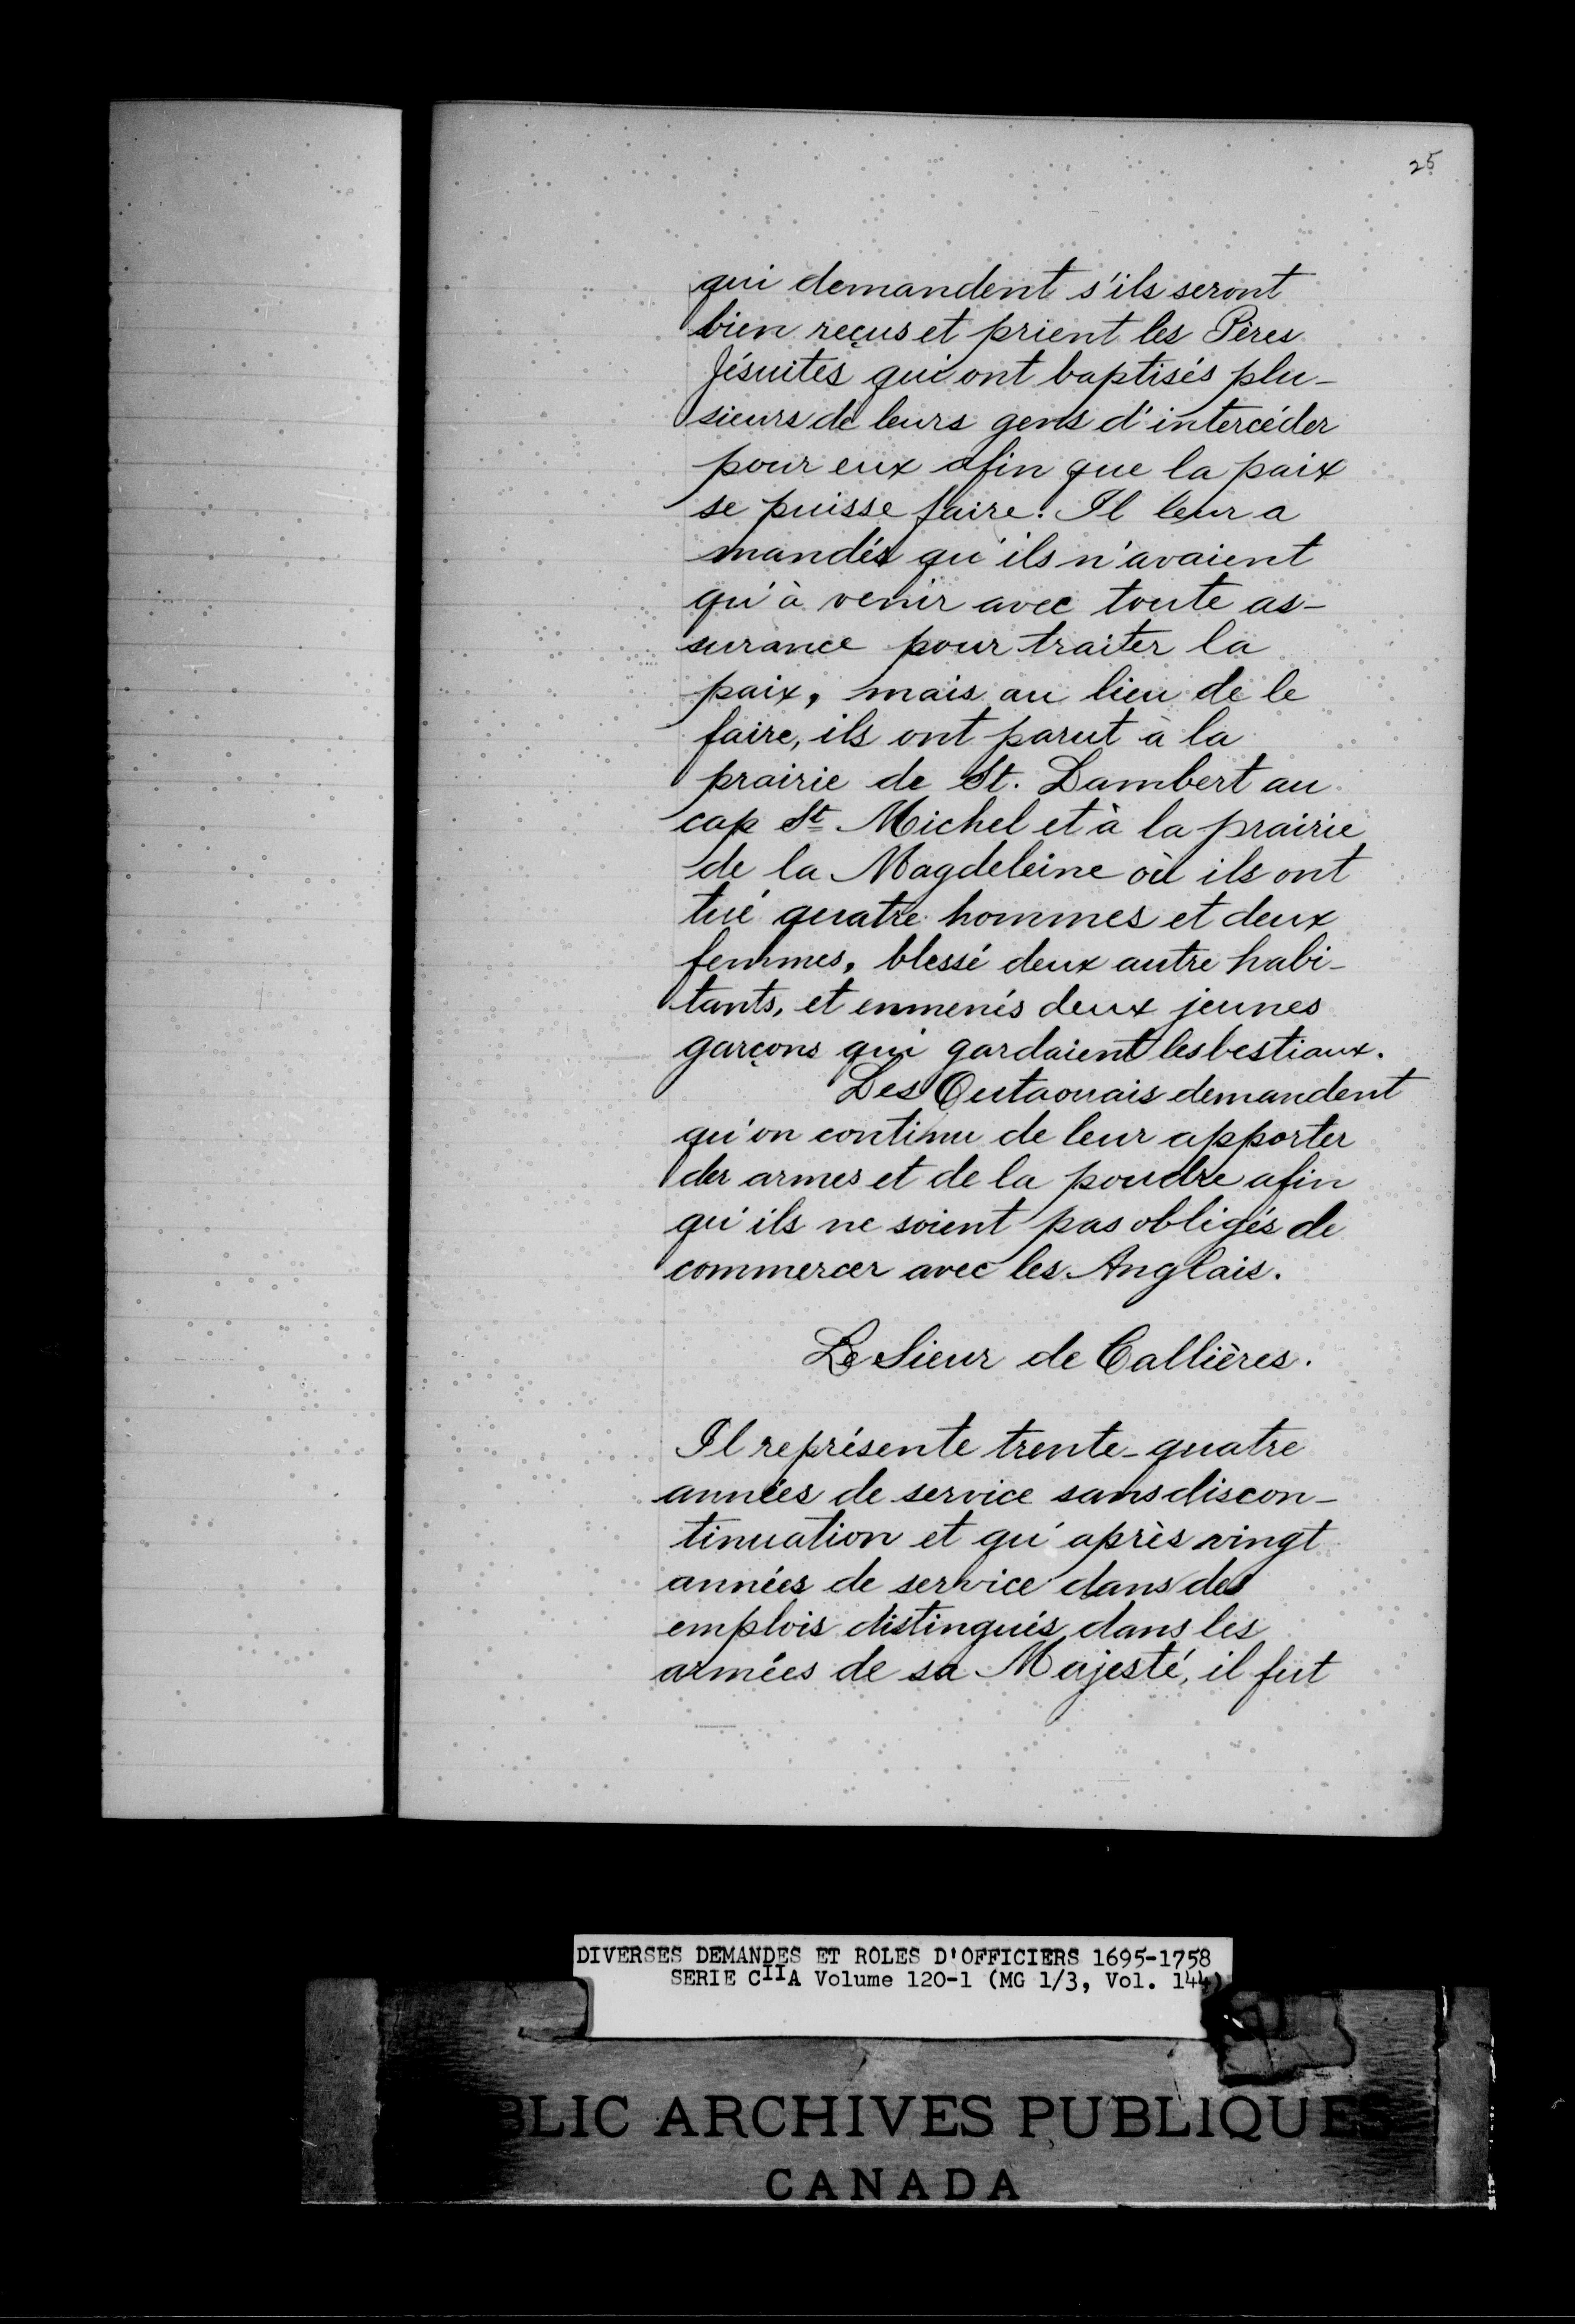 25
qui demandent s'ils seront
bien reçus et prient les Pères
Jésuites qui ont baptisés plu-
sieurs de leurs gens d'intercéder
pour eux afin que la paix
se puisse faire. Il leur a
mandés qu'ils n'avaient
qu'à venir avec toute as-
surance pour traiter la
paix, mais au lieu de le
faire, ils ont parut à la
prairie de St. Lambert au
cap St Michel et à la prairie
de la Magdeleine où ils ont
tué quatre hommes et deux
femmes, blessé deux autre habi-
tants, et enmenés deux jeunes
garçons qui gardaient les bestiaux.
Les Outaouais demandent
qu'on continu de leur apporter
des armes et de la poudre afin
qu'ils ne soient pas obligés de
commercer avec les Anglais.
Le Sieur de Callières.
Il représente trente-quatre
années de service sans discon-
tinuation et qu'après vingt
années de service dans des
emplois distingués dans les
armées de sa Majesté, il fut
DIVERSES DEMANDES ET ROLES D'OFFICIERS 1695-1758
SERIE CIIA Volume 120-1 (MG 1/3, Vol. 144)
BLIC ARCHIVES PUBLIQUES
CANADA